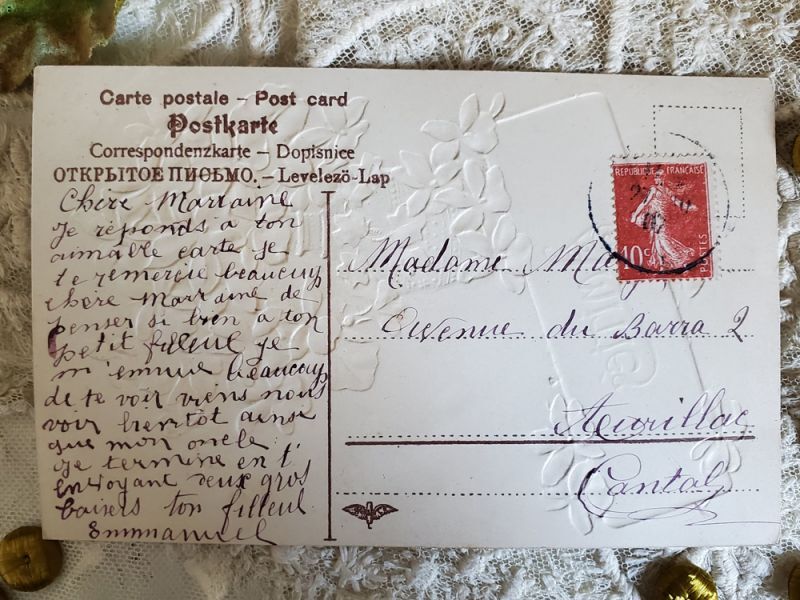 Carte postale – Post card
Postkarte
Correspondenzkarte – Dopisnice
ОТКРЫТОЕ ПИСЬМО. – Levelezö-Lap
Chère Marraine
Je réponds à ton
aimable carte je
te remercie beaucoup
chère Marraine de
penser si bien a ton
petit filleul je
m'ennuie beaucoup
de te voir viens nous
voir bientôt ainsi
que mon oncle
Je termine en t'
envoyant deux gros
baisers ton filleul
Emmanuel
REPUBLIQUE FRANÇAISE
10c
POSTES
Madame
Avenue du Barra 2
Aurillac
Cantal